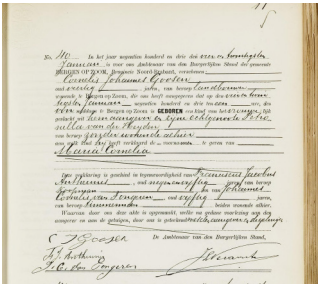 No. 40. In het jaar negentien honderd en drie den vier en twintigsten
Januari is voor ons Ambtenaar van den Burgerlijken Stand der gemeente
BERGEN OP ZOOM, Provincie Noord-Brabant, verschenen
Cornelis Johannes Goosen
oud veertig jaren, van beroep landbouwer
wonende te Bergen op Zoom, die heeft aangegeven dat op den vier en twin-
tigsten Januari negentien honderd en drie ten een ure, des
middags te Bergen op Zoom is GEBOREN een kind van het
geslacht, uit hem aangever en zijne echtgenoote Petro-
nella van der Heijden
van beroep zonder wonende alhier
aan welk kind hij heeft verklaard de voornamen te geven van
Maria Cornelia
Deze verklaring is geschied in tegenwoordigheid van Franciscus Jacobus
oud negen en vijftig jaren van beroep
en van Johannes
Cornelis van Tongeren oud vijftig jaren,
van beroep timmerman beiden wonende alhier.
Waarvan door ons deze akte is opgemaakt, welke na gedane voorlezing aan den
comparant en aan de getuigen, door ons is geteekend
C J Goosen
De Ambtenaar van den Burgerlijken Stand,
F. J.
J. C. van Tongeren